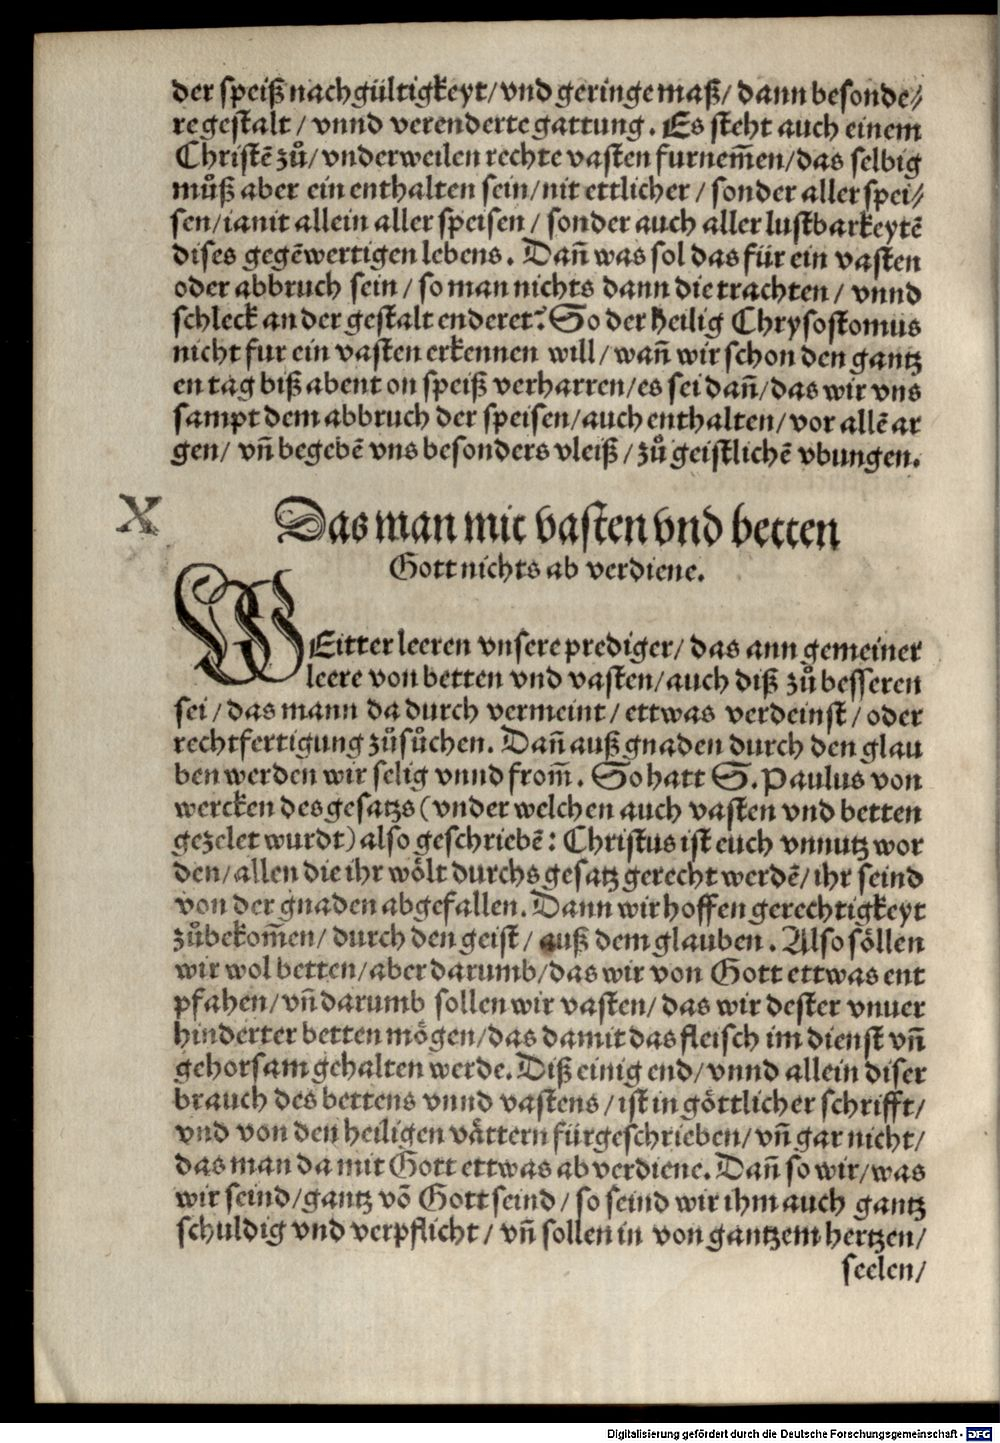 der speiß nachgültigkeyt/ vnd geringe maß/ dann besonde⸗/
re gestalt / vnnd verenderte gattung. Es steht auch einem
Christẽ zů/ vnderweilen rechte vasten furnem̃en/ das selbig
můß aber ein enthalten sein/ nit ettlicher / sonder aller spei⸗/
sen/ ia nit allein aller speisen / sonder auch aller lustbarkeytẽ
dises gegẽwertigen lebens. Dañ was sol das für ein vasten
oder abbruch sein / so man nichts dann die trachten / vnnd
schleck an der gestalt enderet? So der heilig Chrysostomus
nicht fur ein vasten erkennen will / wañ wir schon den gantz
en tag biß abent on speiß verharren/ es sei dañ/ das wir vns
sampt dem abbruch der speisen/ auch enthalten/ vor allẽ ar
gen/ vñ begebẽ vns besonders vleiß / zů geistlichẽ vbungen.
X
Das man mit vasten vnd betten
Gott nichts ab verdiene.
WEitter leeren vnsere prediger/ das ann gemeiner
leere von betten vnd vasten/ auch diß zů besseren
sei / das mann da durch vermeint / ettwas verdeinst / oder
rechtfertigung zůsůchen. Dañ auß gnaden durch den glau
ben werden wir selig vnnd from̃. So hatt S. Paulus von
wercken des gesatzs (vnder welchen auch vasten vnd betten
gezelet wurdt) also geschriebẽ: Christus ist euch vnnutz wor
den/ allen die ihr wölt durchs gesatz gerecht werdẽ/ ihr seind
von der gnaden abgefallen. Dann wir hoffen gerechtigkeyt
zůbekom̃en/ durch den geist / auß dem glauben. Also söllen
wir wol betten/ aber darumb/ das wir von Gott ettwas ent
pfahen/ vñ darumb sollen wir vasten/ das wir dester vnuer
hinderter betten mögen/ das damit das fleisch im dienst vñ
gehorsam gehalten werde. Diß einig end/ vnnd allein diser
brauch des bettens vnnd vastens / ist in göttlicher schrifft/
vnd von den heiligen vättern fürgeschrieben/ vñ gar nicht/
das man da mit Gott ettwas ab verdiene. Dañ so wir/ was
wir seind/ gantz võ Gott seind / so seind wir ihm auch gantz
schuldig vnd verpflicht / vñ sollen in von gantzem hertzen/
seelen/
Digitalisierung gefördert durch die Deutsche Forschungsgemeinschaft - DFG